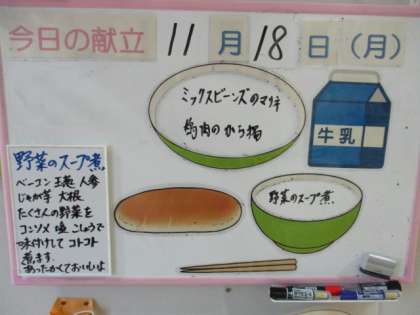 今日の献立 11月18日(月)
ミックスビーンズのマリネ
鶏肉のから揚
牛乳
野菜のスープ煮
野菜のスープ煮
ベーコン 玉葱 人参
じゃが芋 大根
たくさんの野菜を
コンソメ 塩 こしょうで
味付けして コトコト
煮ます。
あったかくておいしいよ